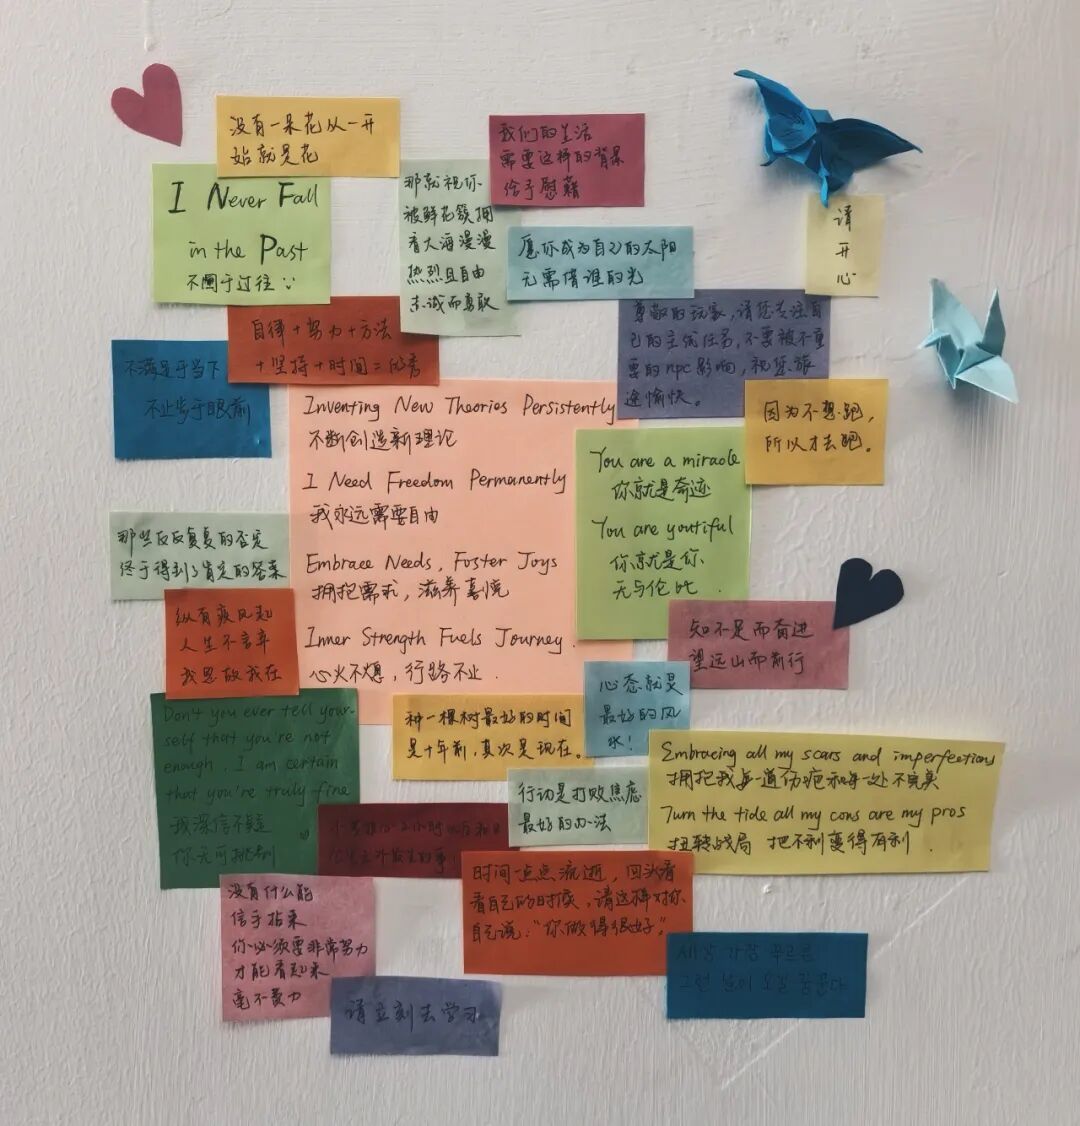 没有一朵花从一开
始就是花
I Never Fall
in the Past
不囿于过往
那就祝你
被鲜花簇拥
看大海漫漫
热烈且自由
赤诚而勇敢
我们的生活
需要这样的背景
给予慰藉
愿你成为自己的太阳
无需借谁的光
请
开
心
尊敬的玩家，请您关注自
己的主线任务，不要被不重
要的npc影响，祝您旅
途愉快。
自律+努力+方法
+坚持+时间=优秀
不满足于当下
不止步于眼前
Inventing New Theories Persistently
不断创造新理论
I Need Freedom Permanently
我永远需要自由
Embrace Needs, Foster Joys
拥抱需求，滋养喜悦
Inner Strength Fuels Journey.
心火不熄，行路不止.
因为不想跑，
所以才去跑。
You are a miracle
你就是奇迹
You are youtiful
你就是你
无与伦比.
那些反反复复的否定
终于得到了肯定的答案
纵有疾风起
人生不言弃
我思故我在
知不足而奋进
望远山而前行
心态就是
最好的风
水！
Don't you ever tell your-
self that you're not
enough. I am certain
that you're truly fine
我深信不疑
你无可挑剔
种一棵树最好的时间
是十年前，其次是现在。
行动是打败焦虑
最好的办法
Embracing all my scars and imperfections
拥抱我每一道伤疤和每一处不完美
Turn the tide all my cons are my pros
扭转战局 把不利变得有利.
小时以后和
时间一点点流逝，回头看
看自己的时候，请这样对你
自己说：“你做得很好”。
没有什么能
信手拈来
你必须要非常努力
才能看起来
毫不费力
请立刻去学习
세상 가장 푸르른
그런 날이 오길 꿈꾼다